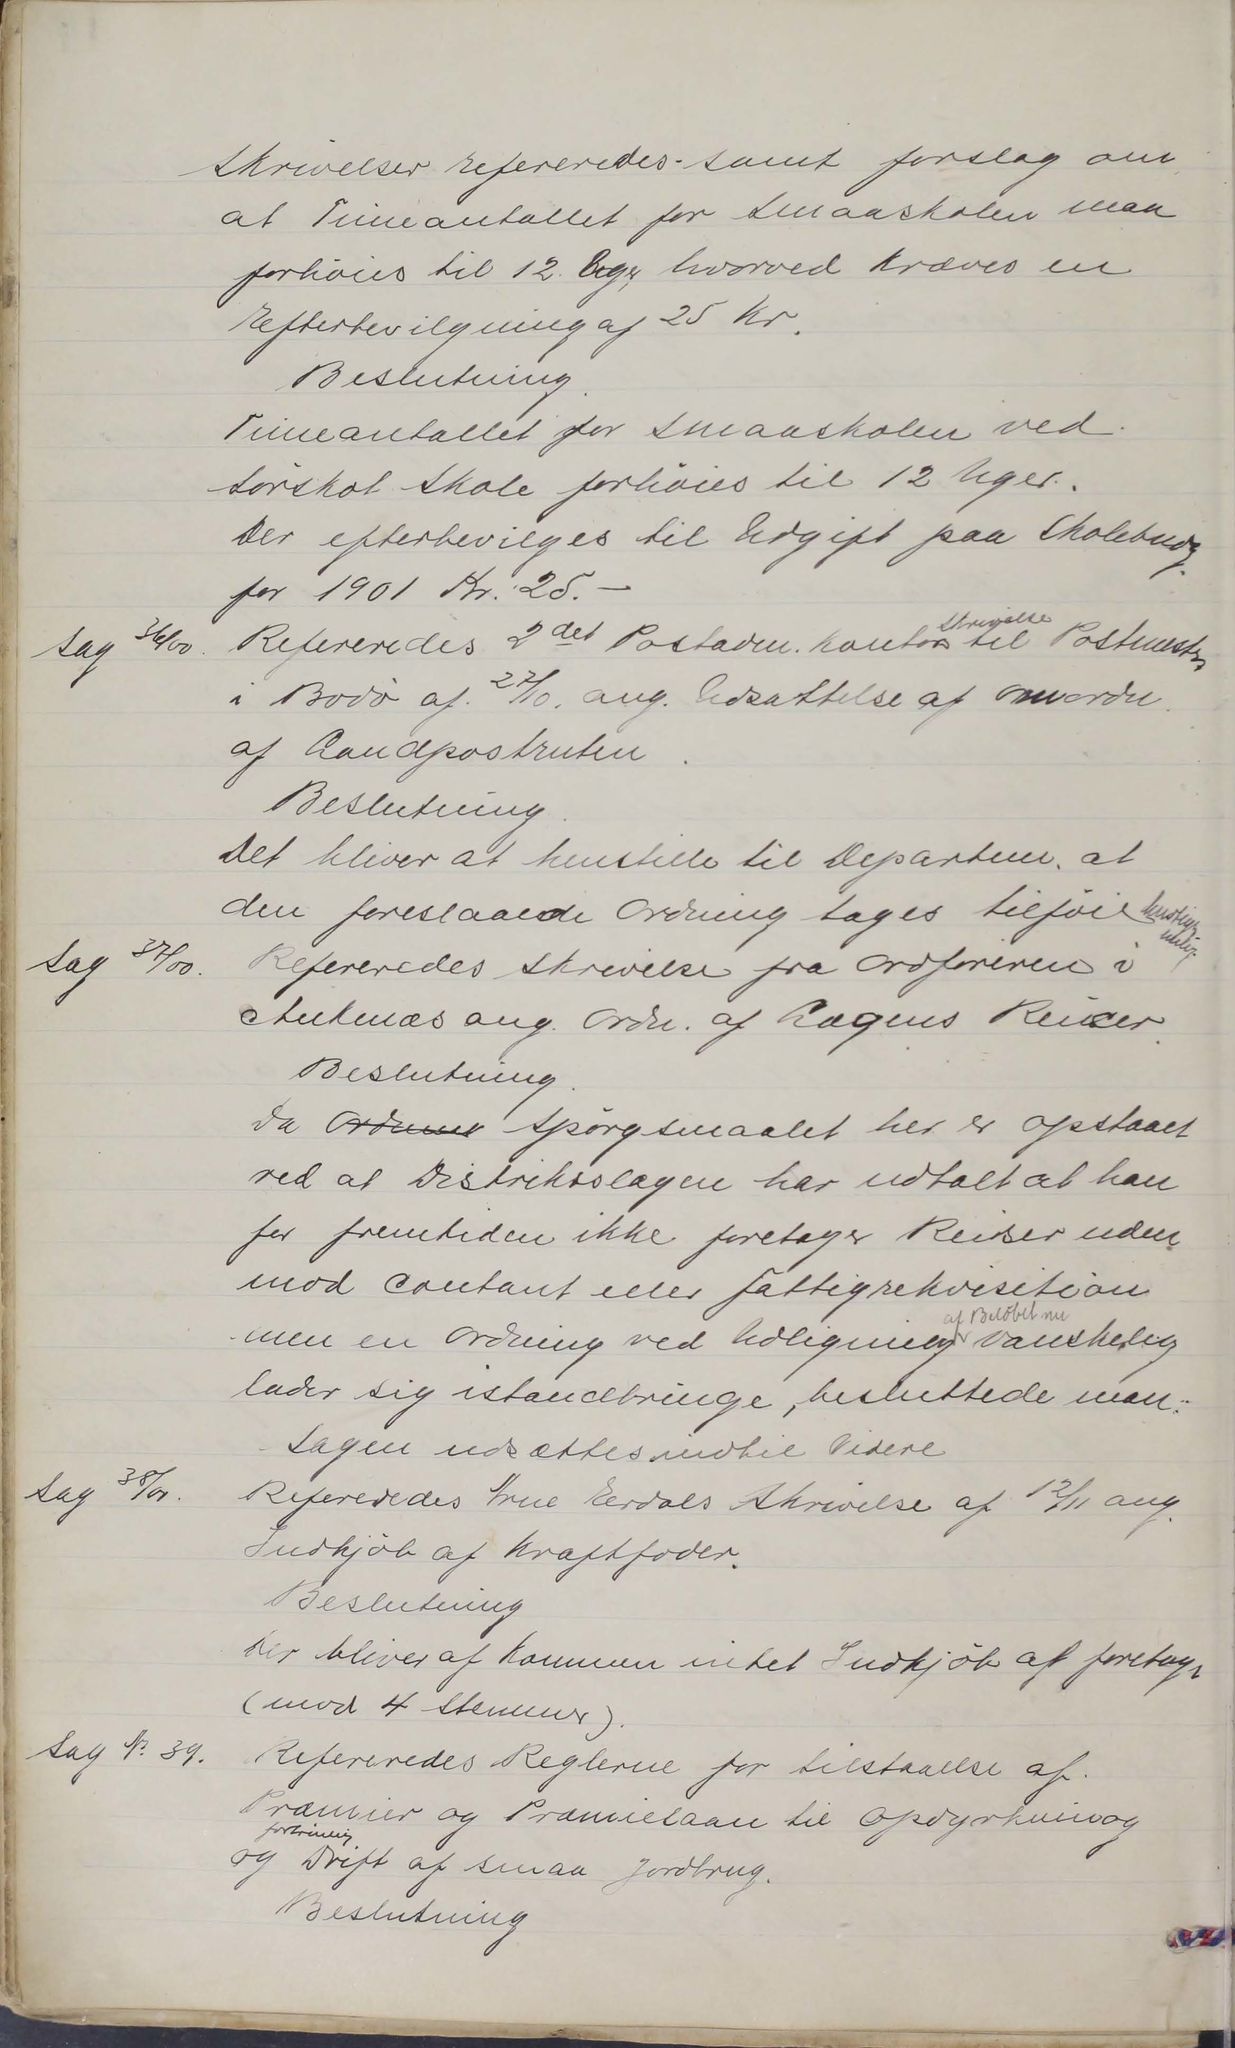 Skrivelser refereredes samt forslag om
at Timeantallet for Smaaskolen maa
forhöies til 12 Uger, hvorved kræves en
Efterbevilgning af 25 Kr.
Beslutning.
Timeantallet for Smaaskolen ved
Sörskot Skole forhöies til 12 Uger.
Der efterbevilges til Udgift paa Skolebudg.
for 1901 Kr. 25.—
Sag 36/00. Refereredes 2det Postadm. kontors Skrivelse til Postmester
i Bodö af 27/10. ang. Udsættelse af omordn.
af Landpostruten.
Beslutning.
Det bliver at henstille til Departem. at
den foreslaaede Ordning tages tilföie
Sag 37/00. Refereredes Skrivelse fra Ordföreren i
Ankenæs ang. Ordn. af Lægens Reiser.
Beslutning.
Da Spörgsmaalet her er opstaaet
ved at Distriktslægen har udtalt at han
for fremtiden ikke foretager Reiser uden
mod contant eller Fattigrekvisition
af Belöbet nu
men en Ordning ved Udligning vanskelig
lader sig istandbringe, besluttede man:
Sagen udsættes indtil Videre
Sag 38/00. Refereredes Skrivelse af 12/11 ang.
Indkjöb af Kraftfoder.
Beslutning
Der bliver af Kommunen intet Indkjöb at foretage
(mod 4 Stemmer).
Sag Nr. 39. Refereredes Reglerne for tilstaaelse af
Præmier og Præmielaan til Opdyrkning
og Drift af smaa Jordbrug.
Beslutning